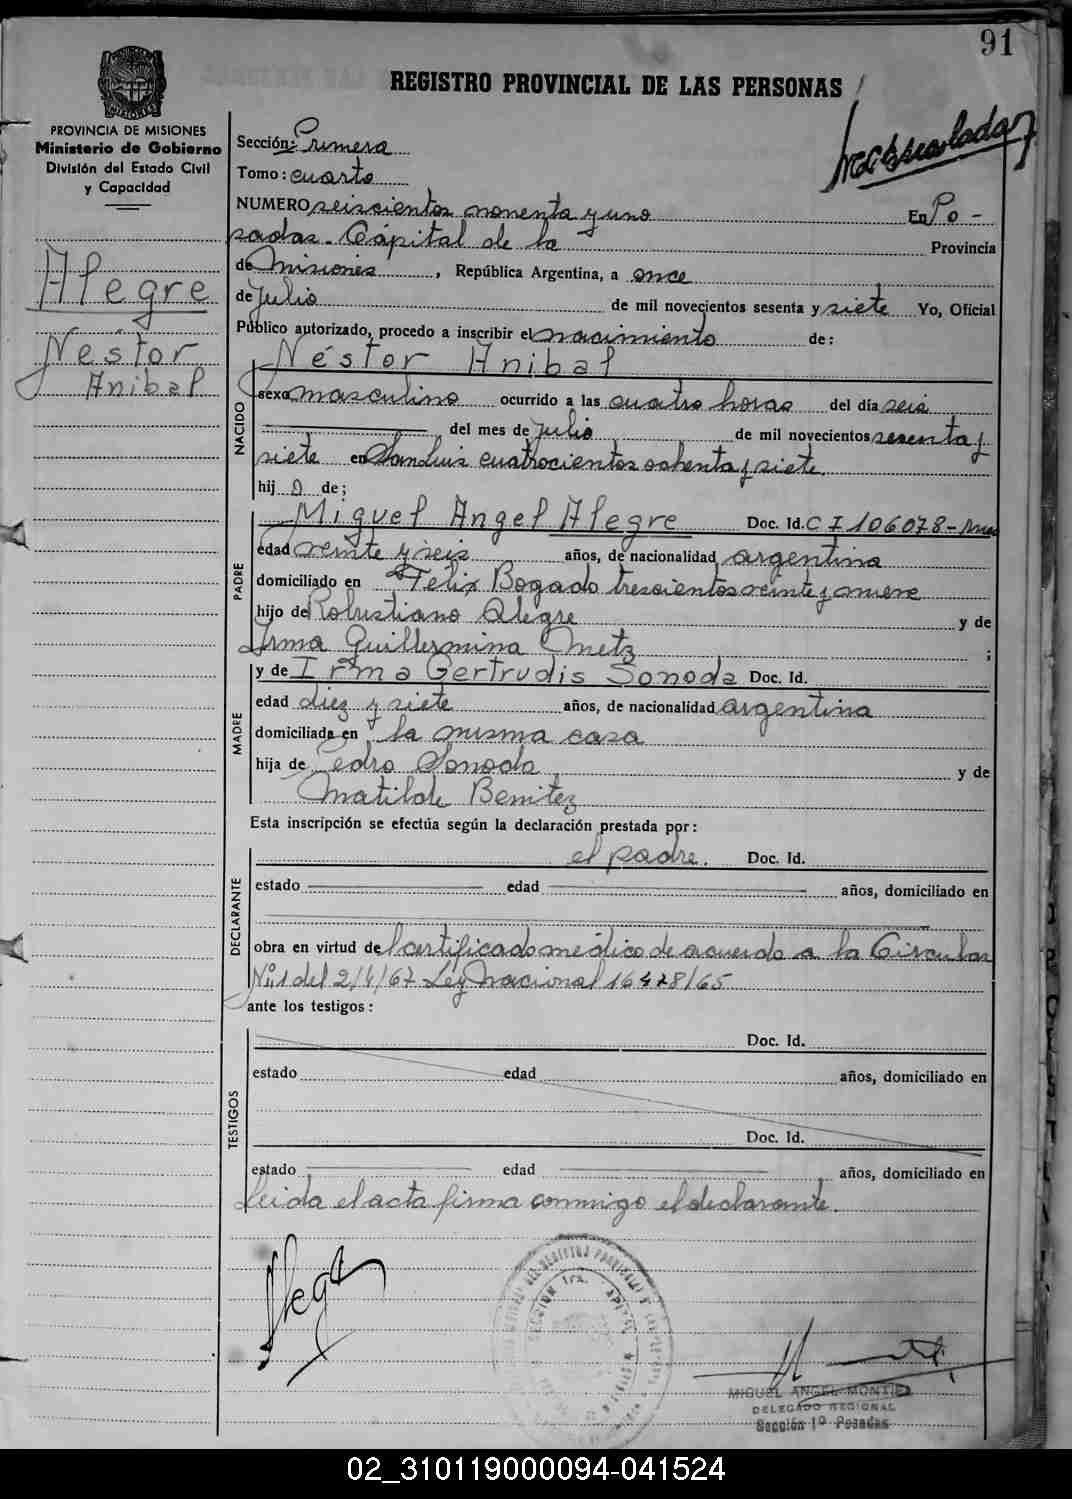 91
REGISTRO PROVINCIAL DE LAS PERSONAS
PROVINCIA DE MISIONES
Ministerio de Gobierno
División del Estado Civil
y Capacidad
Alegre
Néstor
Anibal
Sección: Primera
Tomo: cuarto
NUMERO seiscientos noventa y uno En Po-
sadas. Cápital de la Provincia
de Misiones, República Argentina, a once
de Julio de mil novecientos sesenta y siete Yo, Oficial
Público autorizado, procedo a inscribir el nacimiento de:
NACIDO
Néstor Anibal
sexo masculino ocurrido a las cuatro horas del día seis
del mes de Julio de mil novecientos sesenta y
siete en San Luis cuatrocientos ochenta y siete.
hij o de;
PADRE
Miguel Angel Alegre Doc. Id. C I 106078-
edad veinte y seis años, de nacionalidad argentina
domiciliado en Felix Bogado trescientos veinte y nueve
hijo de Robustiano Alegre y de
Irma Guillermina Metz ;
MADRE
y de Irma Gertrudis Sonoda Doc. Id.
edad diez y siete años, de nacionalidad argentina
domiciliada en la misma casa
hija de Pedro Sonoda y de
Matilde Benitez
Esta inscripción se efectúa según la declaración prestada por:
DECLARANTE
el padre. Doc. Id.
estado edad años, domiciliado en
obra en virtud del certificado médico de acuerdo a la Circular
Nº1 del 2/4/67 Ley Nacional 16478/65
ante los testigos:
TESTIGOS
Doc. Id.
estado edad años, domiciliado en
Doc. Id.
estado edad años, domiciliado en
Leida el acta firma conmigo el declarante.
Alegre
MIGUEL ANGEL MONTIEL
DELEGADO REGIONAL
Sección 1º Posadas
02_310119000094-041524